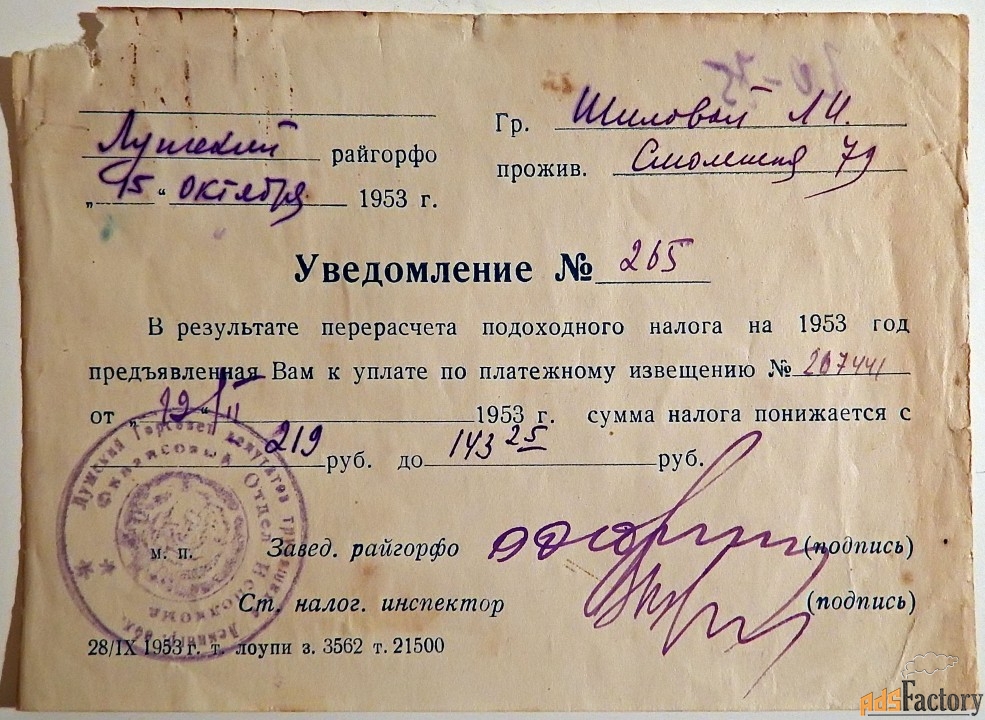 Лужский райгорфо
„15“ октября 1953 г.
Гр. Шиловой Л И.
прожив. Смоленская 79
Уведомление № 265
В результате перерасчета подоходного налога на 1953 год
предъявленная Вам к уплате по платежному извещению № 207441
от „ “ 1953 г. сумма налога понижается с
219 руб. до 143 25 руб.
Лужский Горсовет депутатов трудящихся Ленингр. обл.
Финансовый Отдел Исполкома
м. п.
Завед. райгорфо (подпись)
Ст. налог. инспектор (подпись)
28/IX 1953 г. т. лоупи з. 3562 т. 21500
AdsFactory